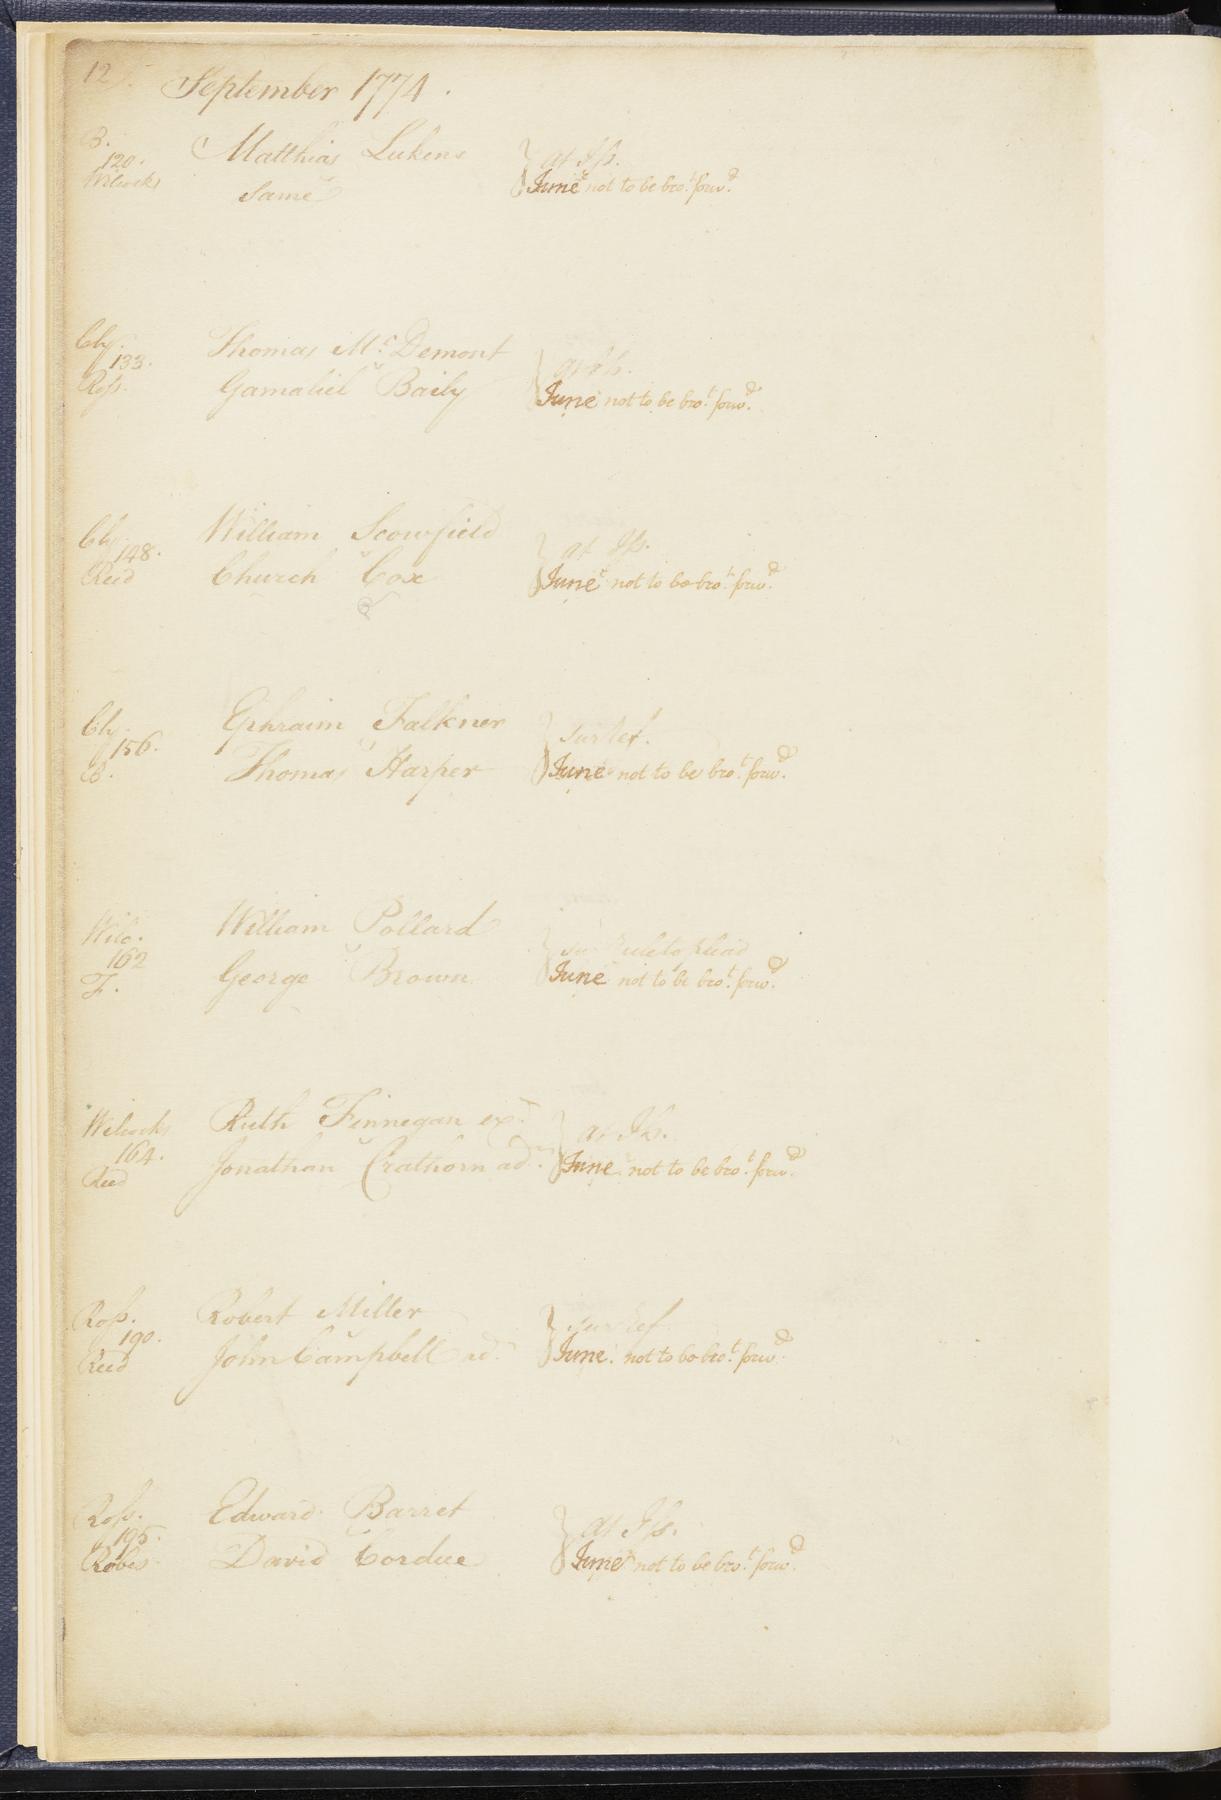 12. September 1774.
B. Matthias Lukens } at Iſs.
120.
Wilcocks Same } June not to be bro.t forw.d
Chy. Thomas Mc.Demont } at Iſs.
133.
Roſs. Gamaliel Baily } June not to be bro.t forw.d
Chy. William Scowfield } at Iſs.
148.
Reed Church Cox } June not to be bro.t forw.d
Chy. Ephraim Falkner } sur ref.
156.
B. Thomas Harper } June not to be bro.t forw.d
Wilc. William Pollard } sur rule to plead
162
F. George Brown } June not to be bro.t forw.d
Wilcocks Ruth Finnegan ex.x } at Iſs.
164.
Reed Jonathan Crathorn ad.r } June not to be bro.t forw.d
Roſs. Robert Miller } sur ref
190.
Reed John Campbell ad. } June. not to be bro.t forw.d
Roſs. Edward Barret } at Iſs.
195.
Robes David Cordue } June not to be bro.t forw.d